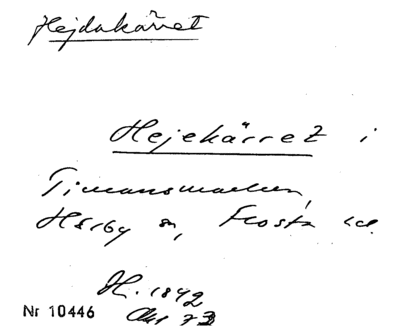 Hejdakärret
Hejekärret i
Timansmarken,
Hörby sn, Frosta hd.
H. 1842
Akt 73
Nr 10446